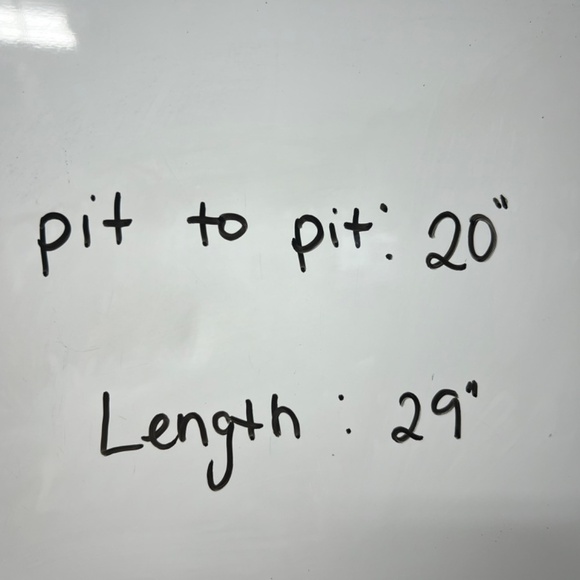 pit to pit: 20"
Length: 29"